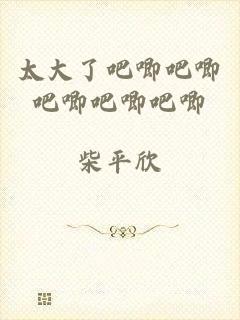 太大了吧唧吧唧
吧唧吧唧吧唧
柴平欣